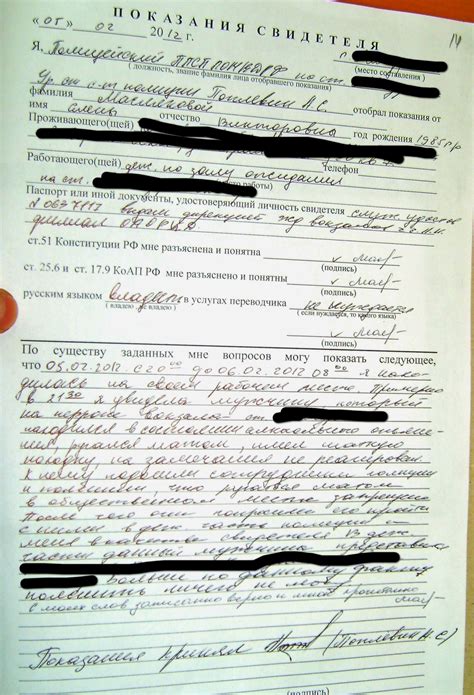 14
ПОКАЗАНИЯ СВИДЕТЕЛЯ
«06» 02 2012 г.
(место составления)
Я, Полицейский ППСП
(должность, звание фамилия лица отобравшего показания)
Поплевин А.С. отобрал показания от
фамилия
имя отчество Викторовны год рождения 1985гр
Проживающего(щей)
Телефон
Работающего(щей) деж. по залу ожидания
на ст.
Паспорт или иной документы, удостоверяющий личность свидетеля служ. удост.
ст.51 Конституции РФ мне разъяснена и понятна
(подпись)
ст. 25.6 и ст. 17.9 КоАП РФ мне разъяснено и понятны
(подпись)
русским языком владеет в услугах переводчика не нуждается
( владею не владею ) (если нуждается, то какого языка)
(подпись)
По существу заданных мне вопросов могу показать следующее,
что 05.02.2012 с 20 00 до 06.02.2012 08 00 я нахо-
дилась на своем рабочем месте. Примерно
в 21 30 я увидела мужчину, который
на перроне вокзала ст.
находился в состоянии алкогольного опьяне-
ния, ругался матом, имел шаткую
походку, на замечания не реагировал
К нему подошли сотрудники полиции
и пояснили что ругаться матом
в общественном месте запрещено
После чего они попросили его пройти
с ними в деж. часть полиции и
меня в качестве свидетеля. В деж.
части данный мужчина представился
Больше по данному факту
пояснить ничего не могу
С моих слов записано верно и мной прочитано
Показания принял (Поплевин А.С.)